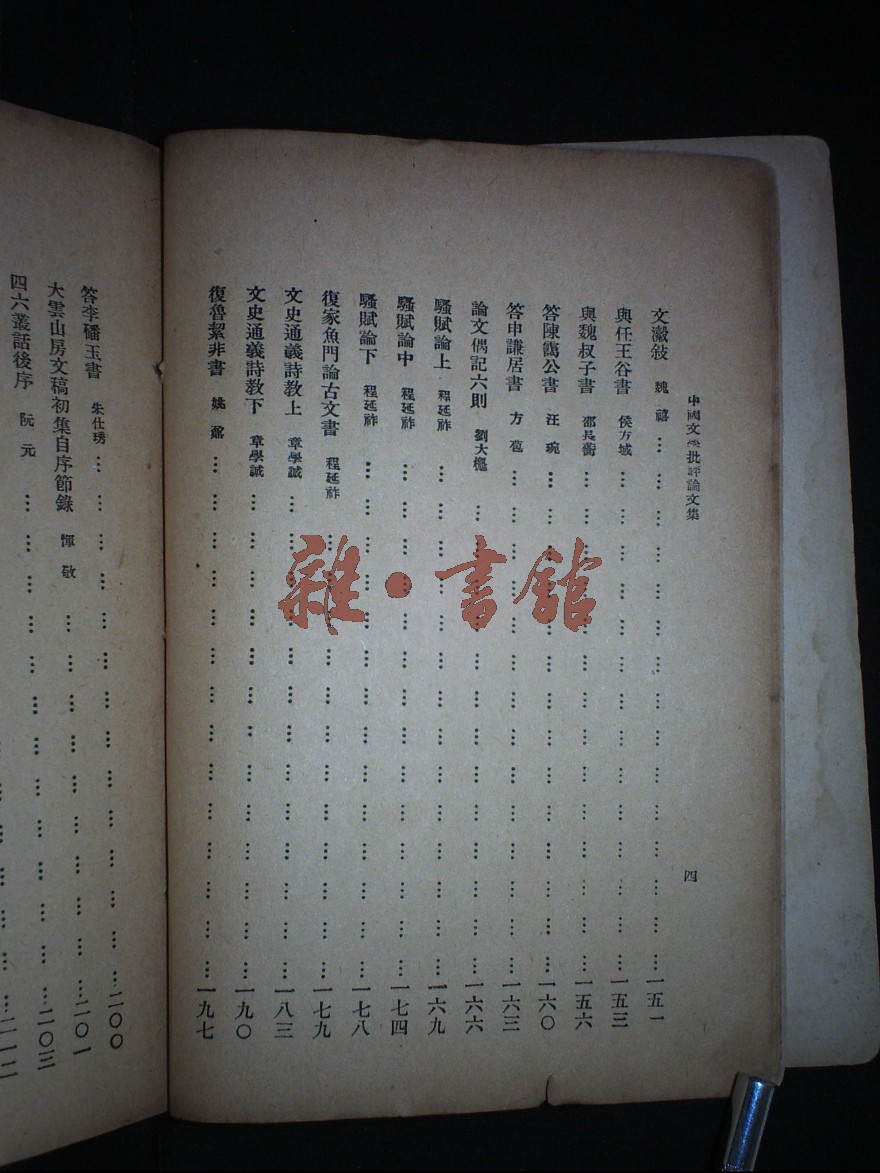 中國文學批評論文集
四
文瀫敍 魏禧 … 一五一
與任王谷書 侯方域 … 一五三
與魏叔子書 邵長蘅 … 一五六
答陳靄公書 汪琬 … 一六〇
答申謙居書 方苞 … 一六三
論文偶記六則 劉大櫆 … 一六六
騷賦論上 程廷祚 … 一六九
騷賦論中 程廷祚 … 一七四
騷賦論下 程廷祚 … 一七八
復家魚門論古文書 程廷祚 … 一七九
文史通義詩教上 章學誠 … 一八三
文史通義詩教下 章學誠 … 一九〇
復魯絜非書 姚鼐 … 一九七
答李磻玉書 朱仕琇 … 二〇〇
大雲山房文稿初集自序節錄 惲敬 … 二〇一
四六叢話後序 阮元 … 二〇三
二一二
雜·書館